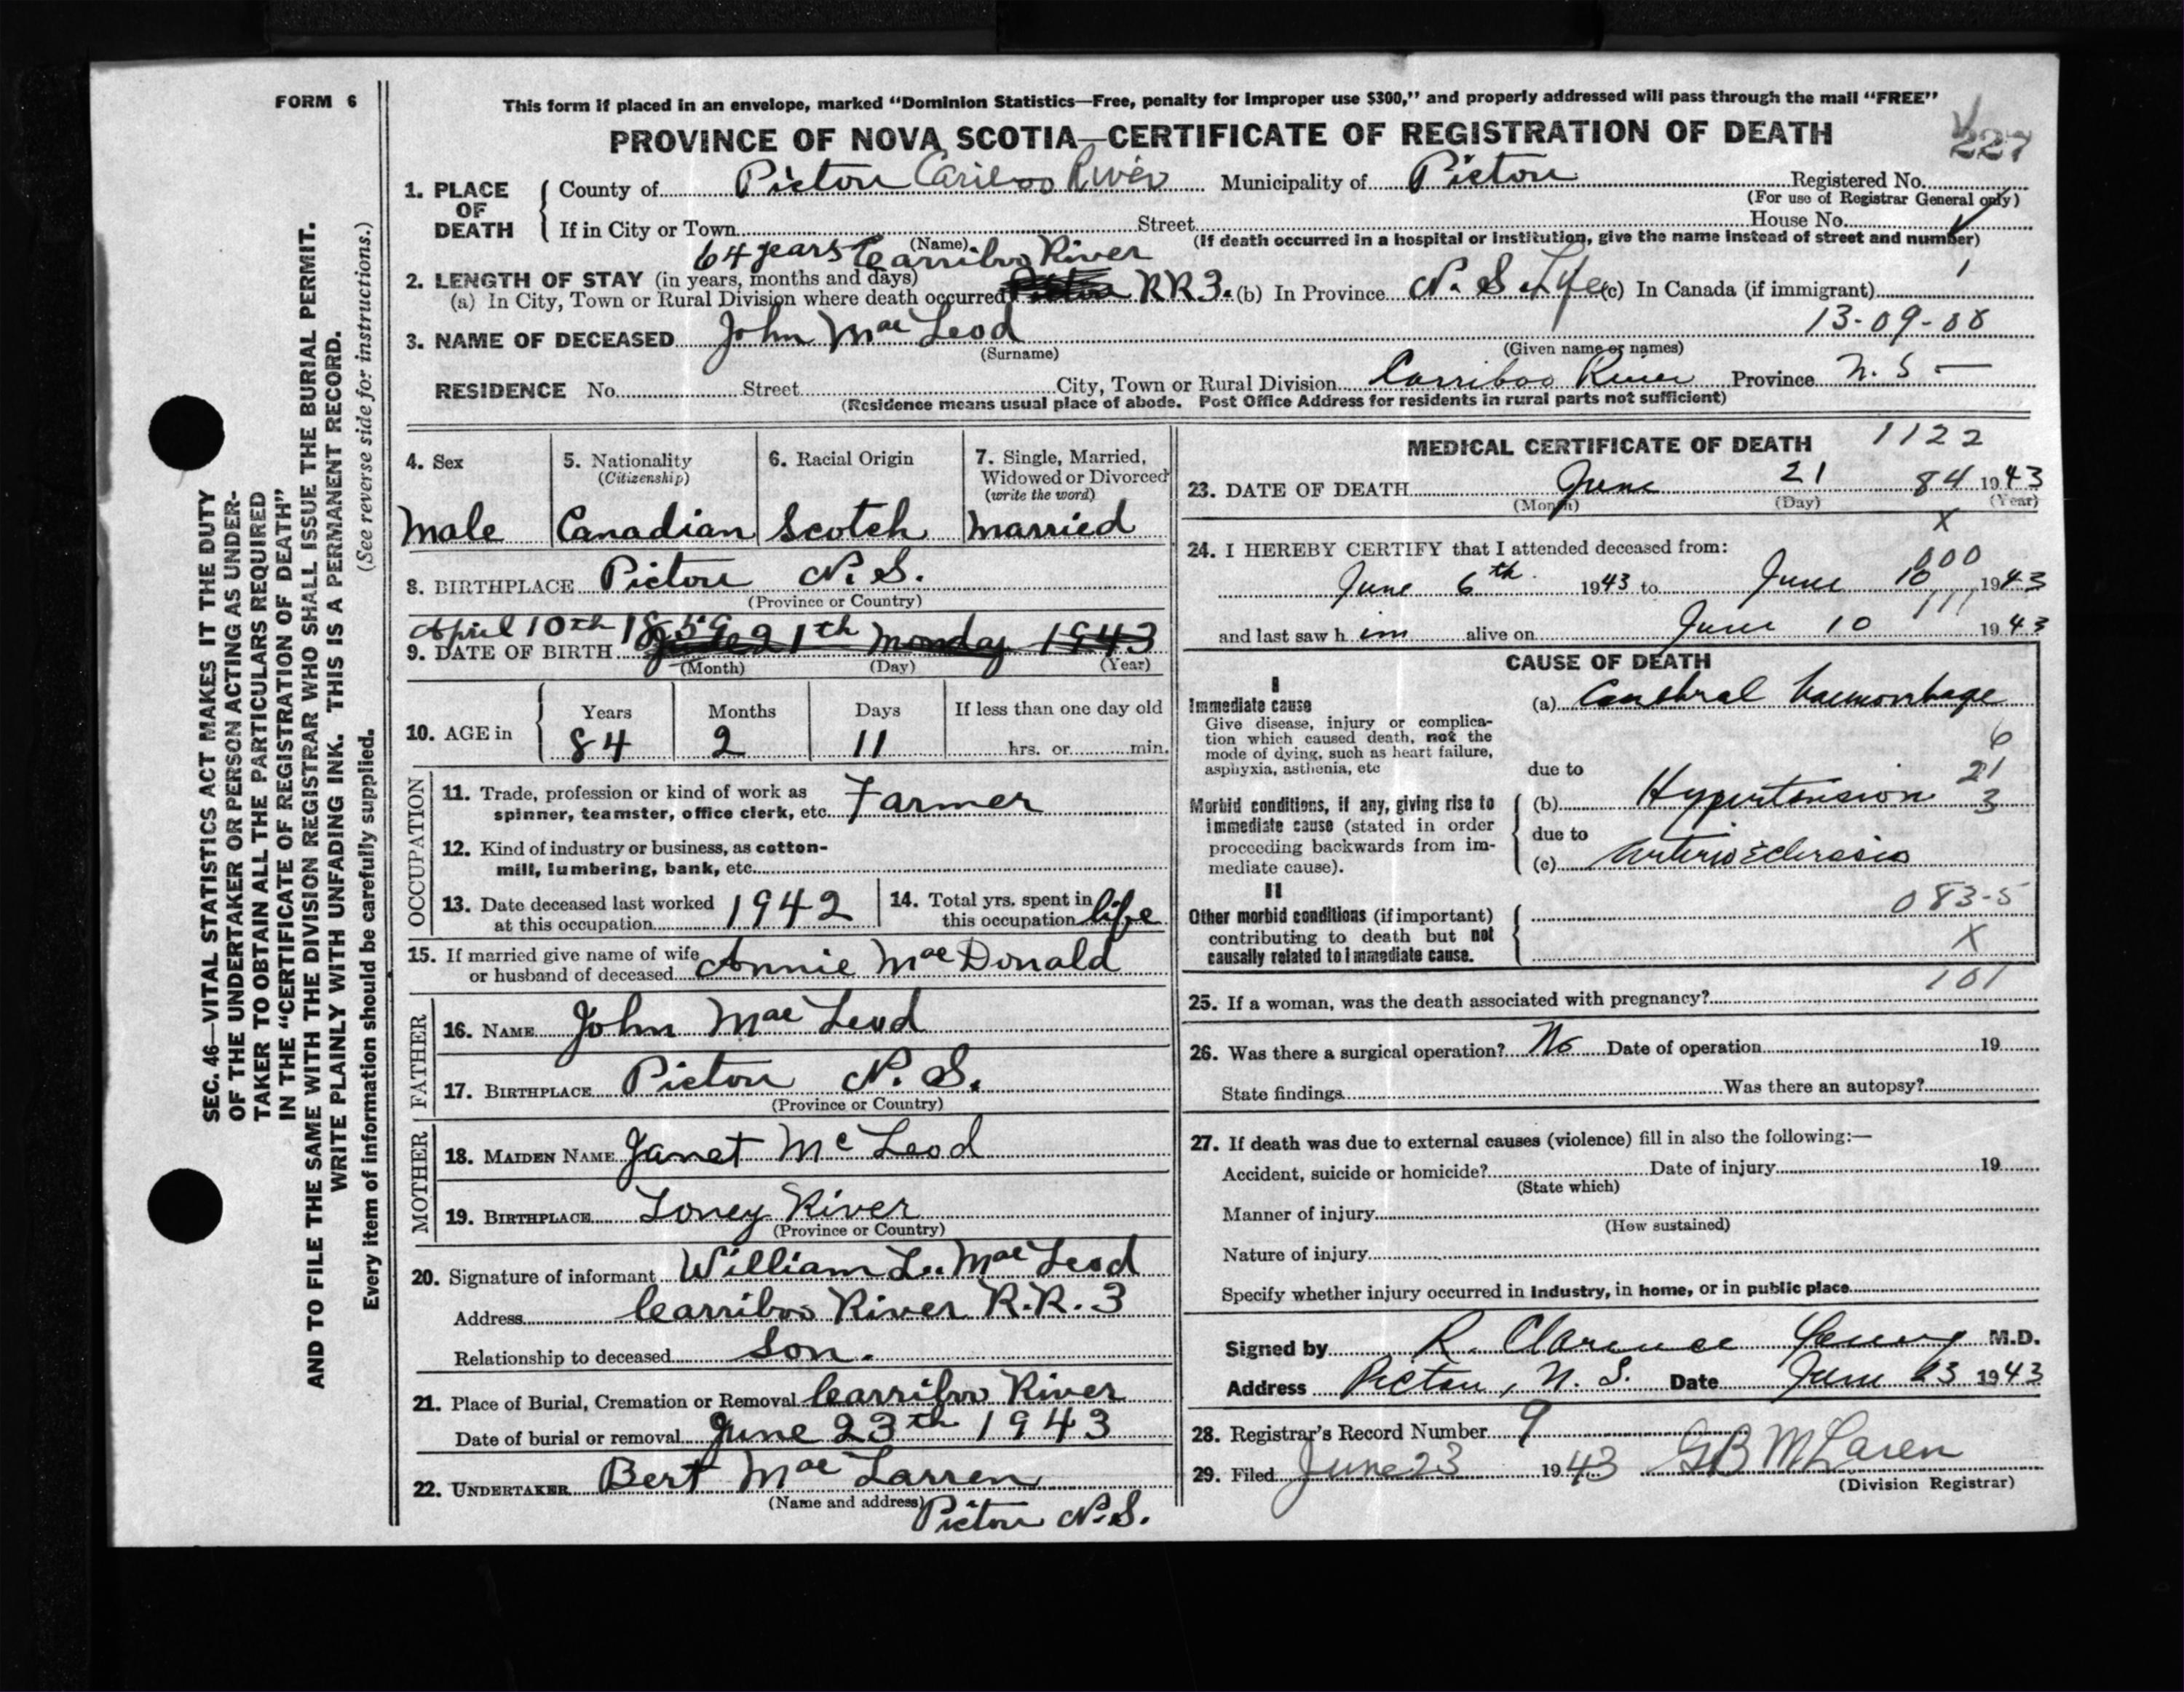 FORM 6
This form if placed in an envelope, marked “Dominion Statistics—Free, penalty for improper use $300,” and properly addressed will pass through the mail “FREE”
PROVINCE OF NOVA SCOTIA—CERTIFICATE OF REGISTRATION OF DEATH
227
1. PLACE OF DEATH
County of Pictou Cariboo River Municipality of Pictou Registered No.
(For use of Registrar General only)
If in City or Town Street House No.
(Name) (If death occurred in a hospital or institution, give the name instead of street and number)
64 years Carriboo River
2. LENGTH OF STAY (in years, months and days)
(a) In City, Town or Rural Division where death occurred RR3. (b) In Province N. S. Life (c) In Canada (if immigrant)
13-09-08
3. NAME OF DECEASED John MacLeod
(Surname) (Given name or names)
RESIDENCE No. Street City, Town or Rural Division Carriboo River Province N. S –
(Residence means usual place of abode. Post Office Address for residents in rural parts not sufficient)
4. Sex
Male
5. Nationality
(Citizenship)
Canadian
6. Racial Origin
Scotch
7. Single, Married,
Widowed or Divorced
(write the word)
Married
8. BIRTHPLACE Pictou N.S.
(Province or Country)
April 10th 1859
9. DATE OF BIRTH June 21th Monday 1943
(Month) (Day) (Year)
10. AGE in
Years Months Days If less than one day old
84 2 11 hrs. or min.
OCCUPATION
11. Trade, profession or kind of work as
spinner, teamster, office clerk, etc. Farmer
12. Kind of industry or business, as cotton-
mill, lumbering, bank, etc.
13. Date deceased last worked
at this occupation 1942
14. Total yrs. spent in
this occupation life
15. If married give name of wife
or husband of deceased Annie MacDonald
FATHER
16. NAME John MacLeod
17. BIRTHPLACE Pictou N. S.
(Province or Country)
MOTHER
18. MAIDEN NAME Janet McLeod
19. BIRTHPLACE Toney River
(Province or Country)
20. Signature of informant William L. MacLeod
Address Carriboo River R.R.3
Relationship to deceased Son.
21. Place of Burial, Cremation or Removal Carriboo River
Date of burial or removal June 23th 1943
22. UNDERTAKER Bert MacLarren
(Name and address) Pictou N.S.
MEDICAL CERTIFICATE OF DEATH 1122
23. DATE OF DEATH June 21 84 1943
(Month) (Day) (Year)
X
24. I HEREBY CERTIFY that I attended deceased from:
000
June 6th 1943 to June 10 1943
111
and last saw h im alive on June 10 1943
CAUSE OF DEATH
I
Immediate cause
Give disease, injury or complica-
tion which caused death, not the
mode of dying, such as heart failure,
asphyxia, asthenia, etc
(a) Cerebral haemorrhage
6
due to
21
Morbid conditions, if any, giving rise to
immediate cause (stated in order
proceeding backwards from im-
mediate cause).
(b) Hypertension 3
due to
(c) Arterio Sclerosis
II
Other morbid conditions (if important)
contributing to death but not
causally related to immediate cause.
083-5
X
101
25. If a woman, was the death associated with pregnancy?
26. Was there a surgical operation? No Date of operation 19
State findings Was there an autopsy?
27. If death was due to external causes (violence) fill in also the following:—
Accident, suicide or homicide? Date of injury 19
(State which)
Manner of injury
(How sustained)
Nature of injury
Specify whether injury occurred in industry, in home, or in public place
Signed by R. Clarence Young M.D.
Address Pictou, N. S. Date June 23 1943
28. Registrar's Record Number 9
29. Filed June 23 1943 GB McLaren
(Division Registrar)
SEC. 46—VITAL STATISTICS ACT MAKES IT THE DUTY
OF THE UNDERTAKER OR PERSON ACTING AS UNDER-
TAKER TO OBTAIN ALL THE PARTICULARS REQUIRED
IN THE “CERTIFICATE OF REGISTRATION OF DEATH”
AND TO FILE THE SAME WITH THE DIVISION REGISTRAR WHO SHALL ISSUE THE BURIAL PERMIT.
WRITE PLAINLY WITH UNFADING INK. THIS IS A PERMANENT RECORD.
(See reverse side for instructions.)
Every item of information should be carefully supplied.